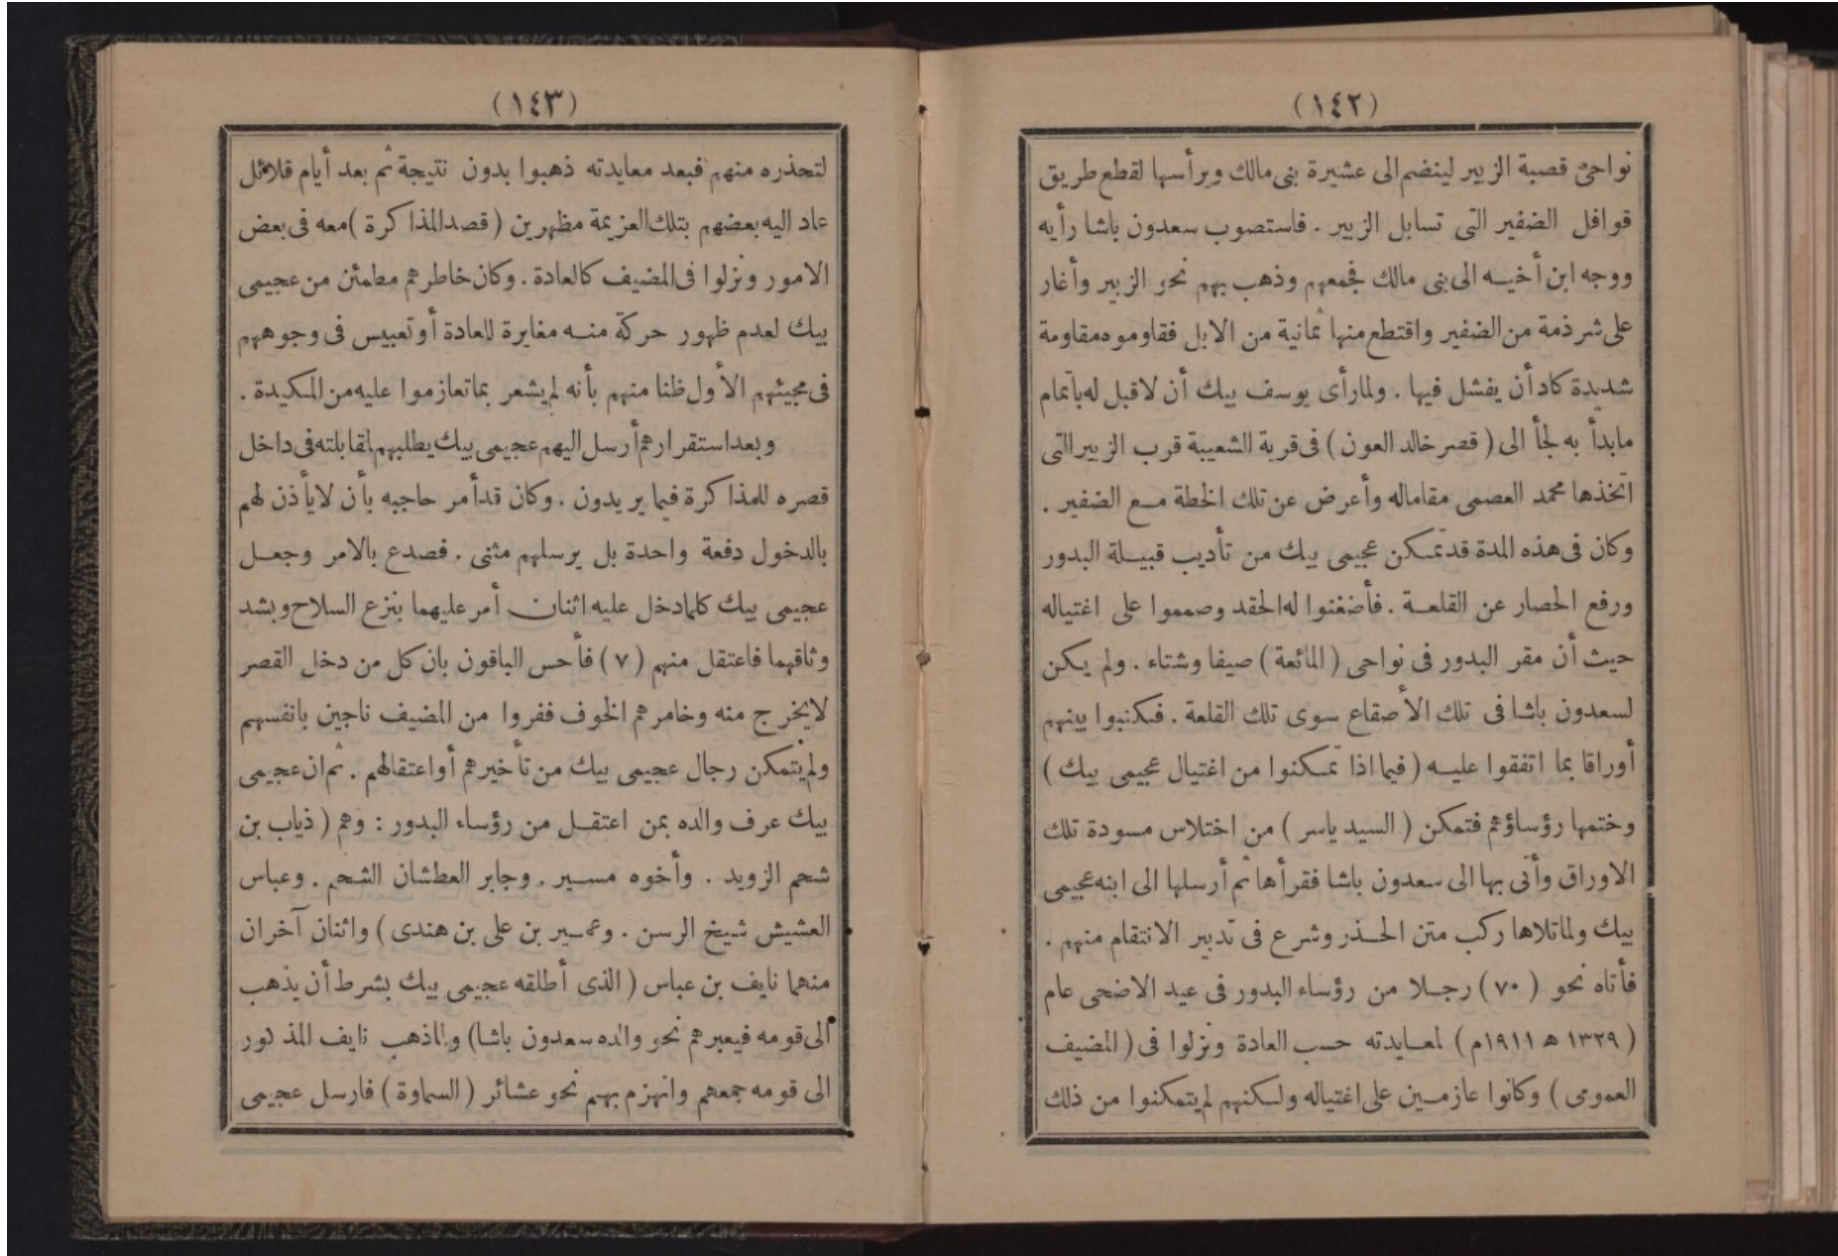 (١٤٢)
نواحئ قصبة الزبير لينضم الى عشيرة بنى مالك ويرأسها لقطع طريق
قوافل الضفير التى تسابل الزبير . فاستصوب سعدون باشا رأيه
ووجه ابن أخيه الى بنى مالك فجمعهم وذهب بهم نحو الزبير وأغار
على شرذمة من الضفير واقتطع منها ثمانية من الابل فقاوموه مقاومة
شديدة كاد أن يفشل فيها . ولما رأى يوسف بيك أن لا قبل له باتمام
ما بدأ به لجأ الى ( قصر خالد العون ) فى قرية الشعيبة قرب الزبير التى
اتخذها محمد العصمى مقاما له وأعرض عن تلك الخطة مع الضفير .
وكان فى هذه المدة قد تمكن عجيمى بيك من تأديب قبيلة البدور
ورفع الحصار عن القلعة . فأضغنوا له الحقد وصمموا على اغتياله
حيث أن مقر البدور فى نواحى ( المائعة ) صيفا وشتاء . ولم يكن
لسعدون باشا فى تلك الأصقاع سوى تلك القلعة . فكتبوا بينهم
أوراقا بما اتفقوا عليه ( فيما اذا تمكنوا من اغتيال عجيمى بيك )
وختمها رؤساؤهم فتمكن ( السيد ياسر ) من اختلاس مسودة تلك
الاوراق وأتى بها الى سعدون باشا فقرأها ثم أرسلها الى ابنه عجيمى
بيك ولما تلاها ركب متن الحذر وشرع فى تدبير الانتقام منهم .
فأتاه نحو ( ٧٠ ) رجلا من رؤساء البدور فى عيد الاضحى عام
( ١٣٢٩ ه ١٩١١م ) لمعايدته حسب العادة ونزلوا فى ( المضيف
العمومى ) وكانوا عازمين على اغتياله ولكنهم لم يتمكنوا من ذلك
(١٤٣)
لتحذره منهم فبعد معايدته ذهبوا بدون نتيجة ثم بعد أيام قلائل
عاد اليه بعضهم بتلك العزيمة مظهرين ( قصد المذاكرة ) معه فى بعض
الامور ونزلوا فى المضيف كالعادة . وكان خاطرهم مطمئن من عجيمى
بيك لعدم ظهور حركة منه مغايرة للعادة أو تعبيس فى وجوههم
فى مجيئهم الأول ظنا منهم بأنه لم يشعر بما تعازموا عليه من المكيدة .
وبعد استقرارهم أرسل اليهم عجيمى بيك يطلبهم لمقابلته فى داخل
قصره للمذاكرة فيما يريدون . وكان قد أمر حاجبه بأن لا يأذن لهم
بالدخول دفعة واحدة بل يرسلهم مثنى . فصدع بالامر وجعل
عجيمى بيك كلما دخل عليه اثنان أمر عليهما بنزع السلاح وبشد
وثاقهما فاعتقل منهم ( ٧ ) فأحس الباقون بان كل من دخل القصر
لا يخرج منه وخامرهم الخوف ففروا من المضيف ناجين بانفسهم
ولم يتمكن رجال عجيمى بيك من تأخيرهم أو اعتقالهم . ثم ان عجيمى
بيك عرف والده بمن اعتقل من رؤساء البدور : وهم ( ذياب بن
شحم الزويد . وأخوه مسير . وجابر العطشان الشحم . وعباس
العشيش شيخ الرسن . وعمير بن على بن هندى ) واثنان آخران
منهما نايف بن عباس ( الذى أطلقه عجيمى بيك بشرط أن يذهب
الى قومه فيعبرهم نحو والده سعدون باشا ) ولما ذهب نايف المذكور
الى قومه جمعهم وانهزم بهم نحو عشائر ( السماوة ) فارسل عجيمى